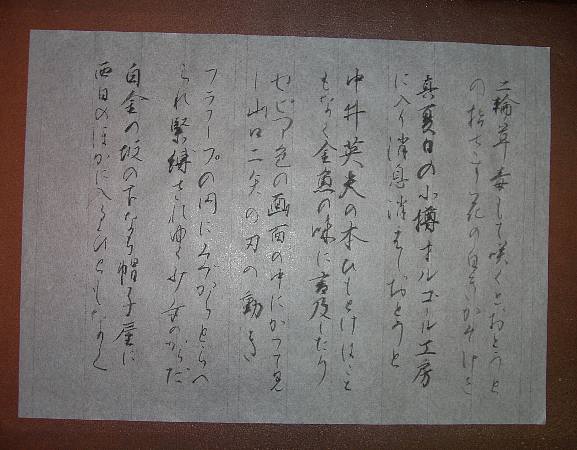 二輪草 毒もして咲くとおとうと
の指さきに花の
真夏日の小樽オルゴール工房
に入り消息消すおとうと
中井英夫の本ひもとけばこと
もなく金魚の味に言及したり
セピア色の画面の中にかつて見
し山口二矢の刃の動き
フラフープの円にみづからとらへ
られ緊縛されゆく少女のからだ
白金の坂の下なる帽子屋に
西日のほかに入るひともなく